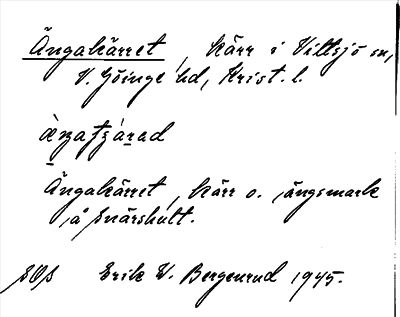 Ängakärret, kärr i Vittsjö sn,
V. Göinge hd, Krist. l.
Ängakärret, kärr o. ängsmark
å Snärshult.
Erik W. Bergenrud 1945.